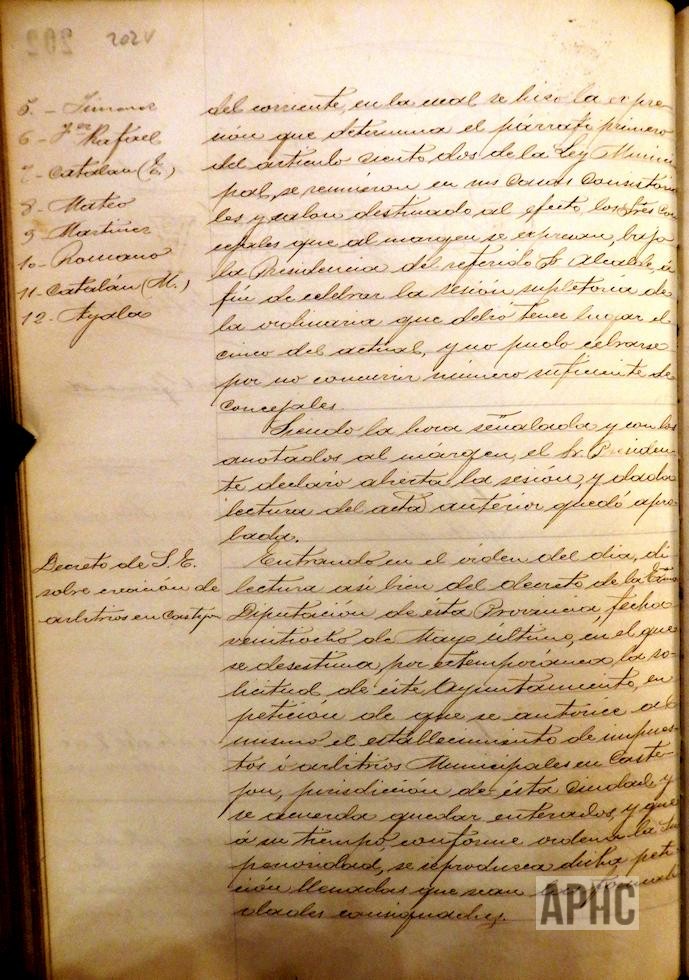 202v
5. - Jimenez
6 - J. Rafael
7 - Catalán (E.)
8 - Mateo
9 Martinez
10 - Romano
11 - Catalán (M.)
12. Ayala
del corriente, en la cual se hiso la expre-
sión que determina el párrafo primero
del artículo ciento dos de la Ley Munici-
pal, se reunieron en sus Casas Consistoria-
les y salon destinado al efecto los Sres Con-
cejales que al margen se expresan, bajo
la Presidencia del referido Sr Alcalde, á
fin de celebrar la sesión supletoria de
la ordinaria que debió tener lugar el
cinco del actual, y no pudo celebrarse
por no concurrir número suficiente de
Concejales.
Siendo la hora señalada y con los
anotados al márgen, el Sr. Presiden-
te declaró abierta la sesión, y dada
lectura del acta anterior quedó apro-
bada.
Decreto de S. E.
sobre creación de
arbitrios en Castejon
Entrando en el orden del dia, dí
lectura así bien del decreto de la Exma
Diputación de ésta Provincia, fecha
veintiocho de Mayo último, en el que
se desestima, por extemporánea, la so-
licitud de éste Ayuntamiento, en
petición de que se autorice al
mismo el establecimiento de impues-
tos ó arbitrios Municipales en Caste-
jon, jurisdicción de ésta Ciudad y
se acuerda quedar enterados, y que
á su tiempo, conforme ordena la Su-
perioridad, se reproduzca dicha peti-
ción llenadas que sean
dades consignadas.
APHC